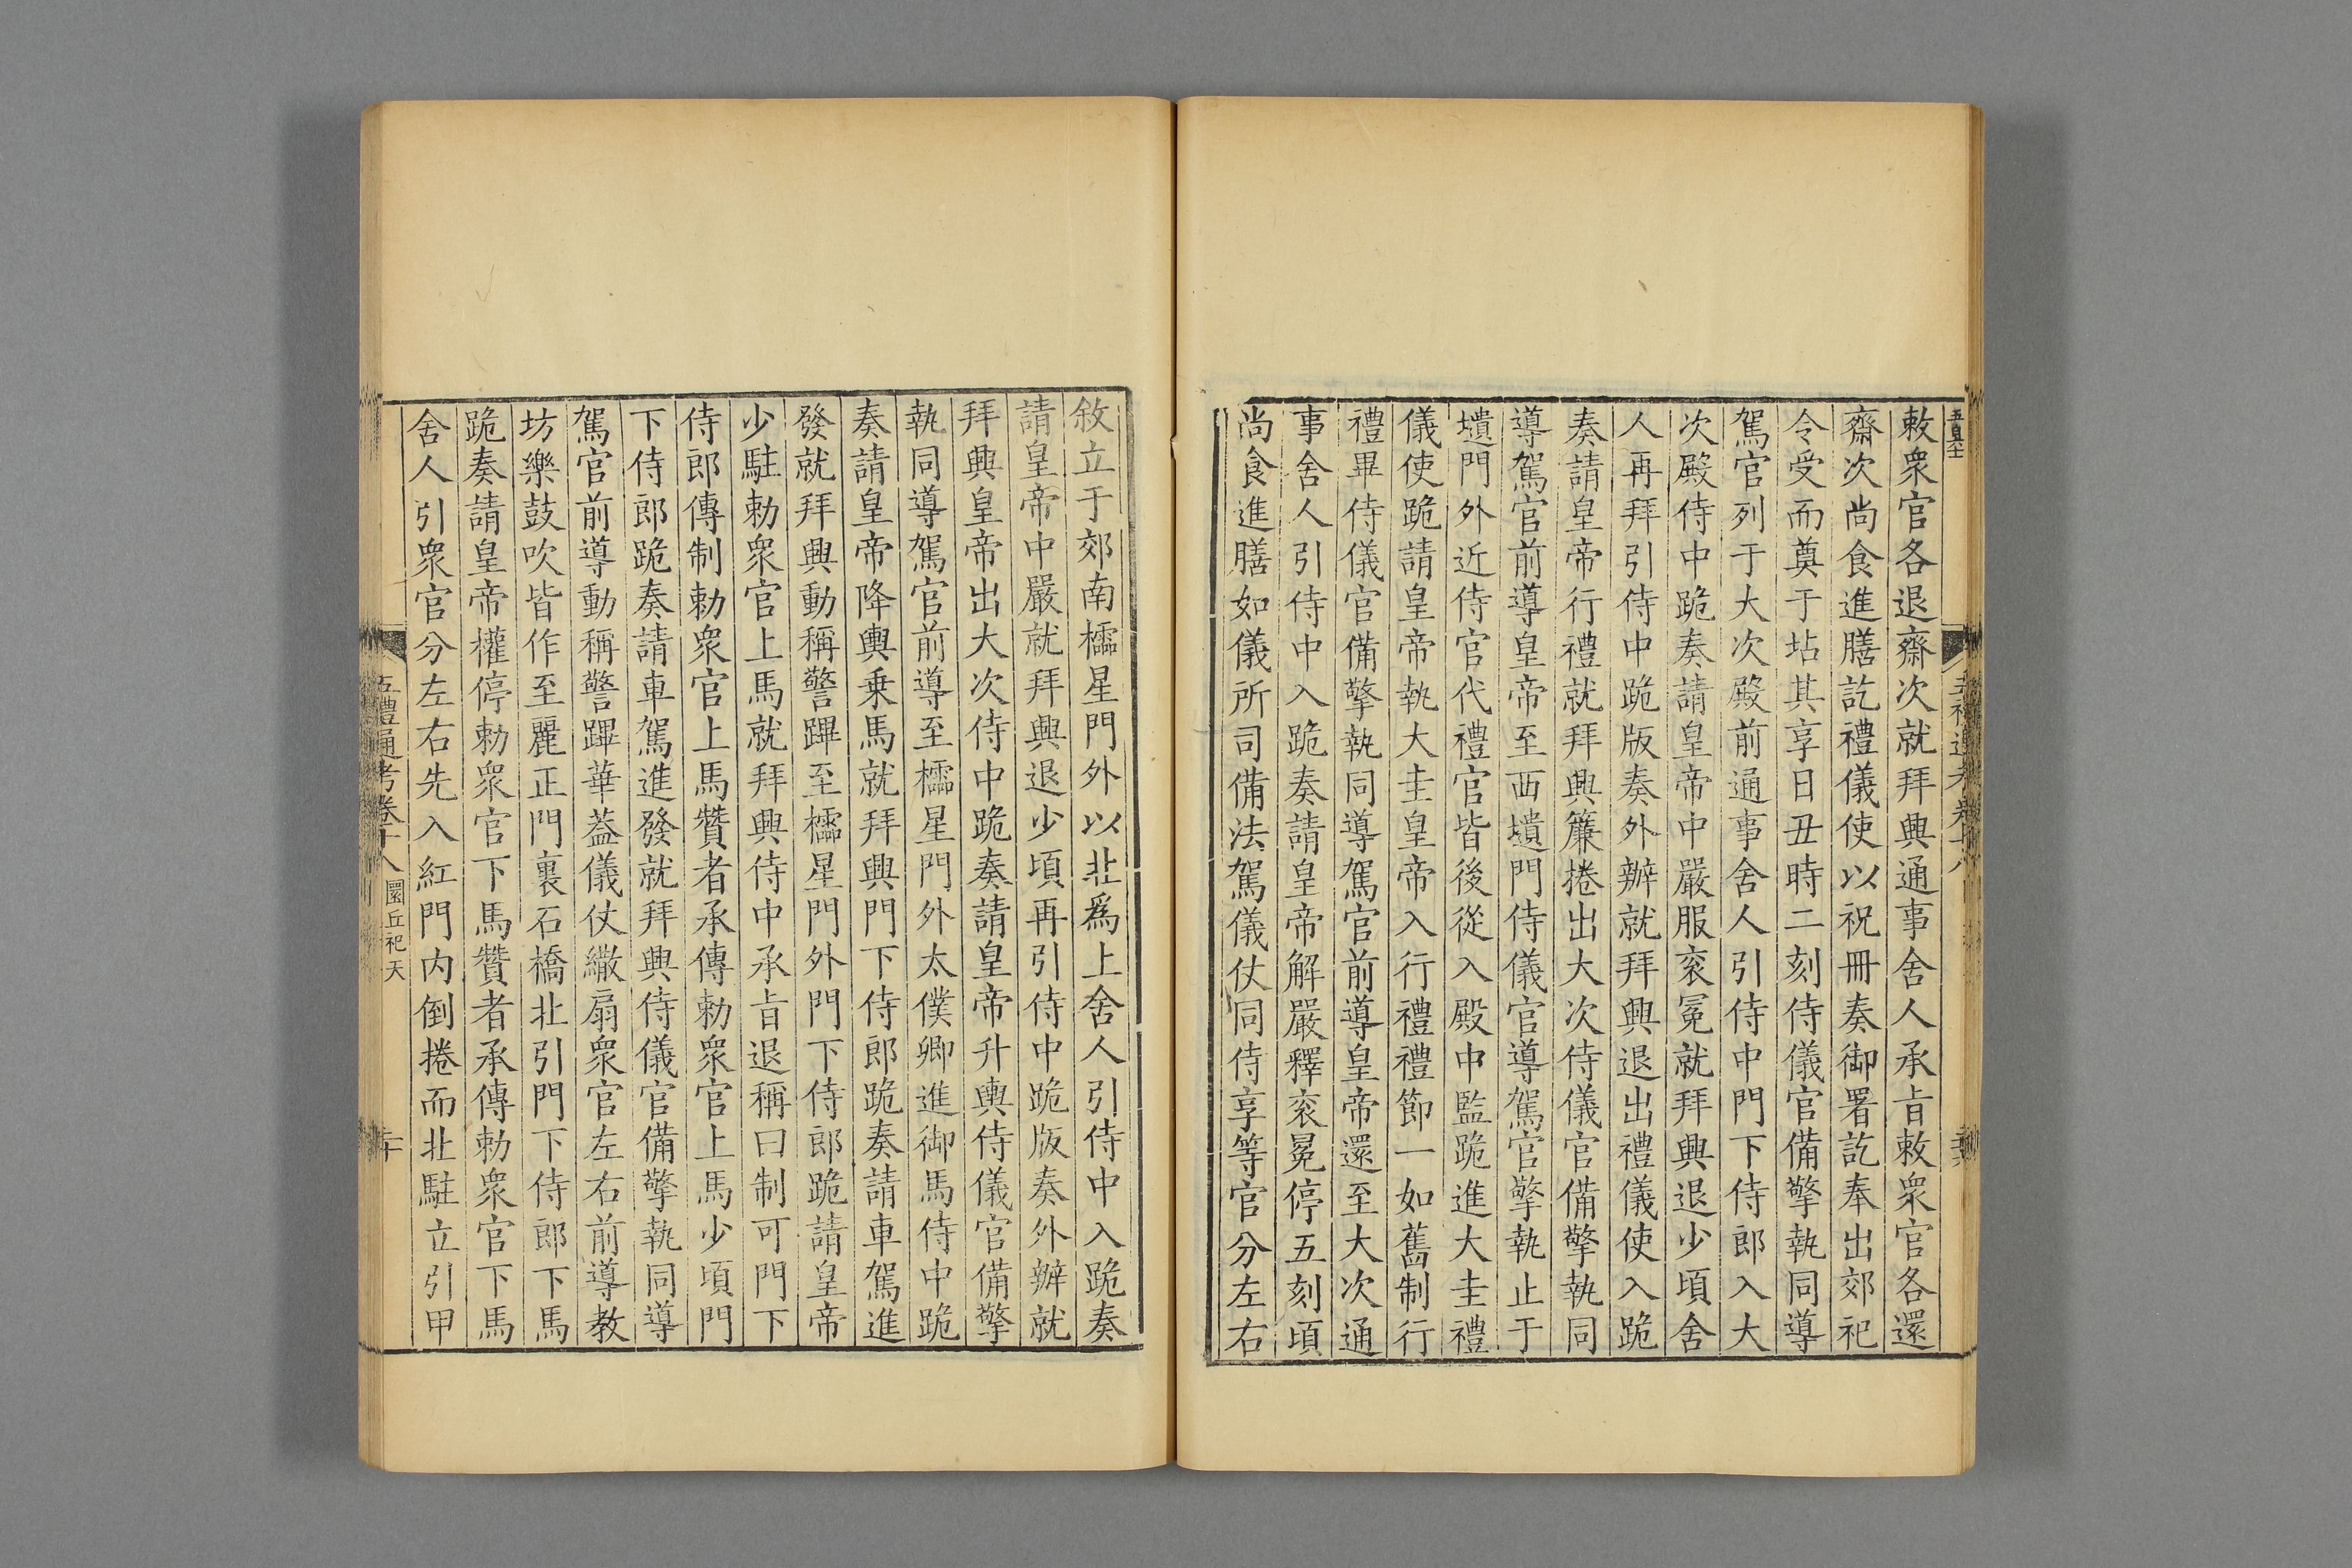 敕衆官各退齋次就拜興通事舍人承㫖敕衆官各還
齋次尚食進膳訖禮儀使以祝冊奏御署訖奉出郊祀
令受而奠于坫其享日丑時二刻侍儀官備擎執同導
駕官列于大次殿前通事舍人引侍中門下侍郎入大
次殿侍中跪奏請皇帝中嚴服衮冕就拜興退少頃舍
人再拜引侍中跪版奏外辦就拜興退出禮儀使入跪
奏請皇帝行禮就拜興簾捲出大次侍儀官備擎執同
導駕官前導皇帝至西壝門侍儀官導駕官擎執止于
壝門外近侍官代禮官皆後從入殿中監跪進大圭禮
儀使跪請皇帝執大圭皇帝入行禮禮節一如舊制行
禮畢侍儀官備擎執同導駕官前導皇帝還至大次通
事舍人引侍中入跪奏請皇帝解嚴釋衮冕停五刻頃
尚食進膳如儀所司備法駕儀仗同侍享等官分左右
敘立于郊南櫺星門外以北爲上舍人引侍中入跪奏
請皇帝中嚴就拜興退少頃再引侍中跪版奏外辦就
拜興皇帝出大次侍中跪奏請皇帝升輿侍儀官備擎
執同導駕官前導至櫺星門外太僕卿進御馬侍中跪
奏請皇帝降輿乗馬就拜興門下侍郎跪奏請車駕進
發就拜興動稱警蹕至櫺星門外門下侍郎跪請皇帝
少駐勅衆官上馬就拜興侍中承㫖退稱曰制可門下
侍郎傳制勅衆官上馬贊者承傳勅衆官上馬少頃門
下侍郎跪奏請車駕進發就拜興侍儀官備擎執同導
駕官前導動稱警蹕華葢儀仗繖扇衆官左右前導教
坊樂鼓吹皆作至麗正門裏石橋北引門下侍郎下馬
跪奏請皇帝權停勅衆官下馬贊者承傳勅衆官下馬
舍人引衆官分左右先入紅門内倒捲而北駐立引甲
五禮通考卷十八 圜丘祀天